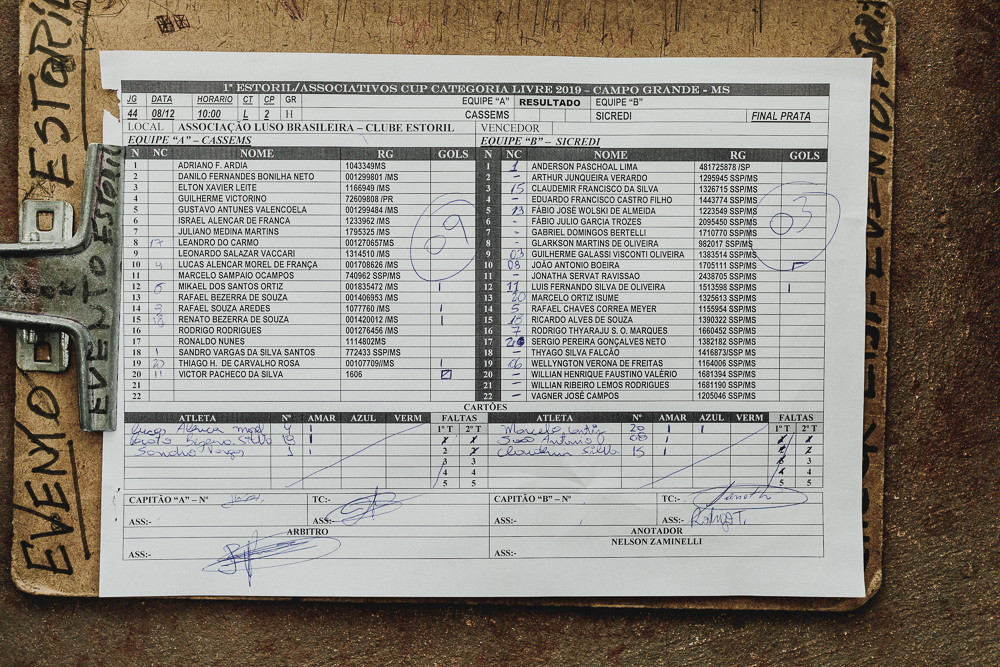 EVENTO ESTORIL
EVENTO ESTORIL
1ª ESTORIL/ASSOCIATIVOS CUP CATEGORIA LIVRE 2019 – CAMPO GRANDE - MS
JG DATA HORARIO CT CP GR EQUIPE “A” RESULTADO EQUIPE “B”
44 08/12 10:00 L 2 H CASSEMS SICREDI FINAL PRATA
LOCAL ASSOCIAÇÃO LUSO BRASILEIRA – CLUBE ESTORIL VENCEDOR
EQUIPE “A” – CASSEMS
N NC NOME RG GOLS
1 ADRIANO F. ARDIA 1043349MS
2 DANILO FERNANDES BONILHA NETO 001299801 /MS
3 ELTON XAVIER LEITE 1166949 /MS
4 GUILHERME VICTORINO 72609808 /PR
5 GUSTAVO ANTUNES VALENCOELA 001299484 /MS
6 ISRAEL ALENCAR DE FRANCA 1233962 /MS
7 JULIANO MEDINA MARTINS 1795325/MS
8 17 LEANDRO DO CARMO 001270657MS
9 LEONARDO SALAZAR VACCARI 1314510 /MS
10 4 LUCAS ALENCAR MOREL DE FRANÇA 001708626 /MS
11 MARCELO SAMPAIO OCAMPOS 740962 SSP/MS
12 6 MIKAEL DOS SANTOS ORTIZ 001835472 /MS
13 RAFAEL BEZERRA DE SOUZA 001406953 /MS
14 3 RAFAEL SOUZA AREDES 1077760 /MS
15 18 RENATO BEZERRA DE SOUZA 001420012 /MS
16 RODRIGO RODRIGUES 001276456 /MS
17 RONALDO NUNES 1114802MS
18 1 SANDRO VARGAS DA SILVA SANTOS 772433 SSP/MS
19 20 THIAGO H. DE CARVALHO ROSA 00107709//MS
20 11 VICTOR PACHECO DA SILVA 1606
21
22
09
EQUIPE “B” - SICREDI
N NC NOME RG GOLS
1 1 ANDERSON PASCHOAL LIMA 481725878 /SP
2 - ARTHUR JUNQUEIRA VERARDO 1295945 SSP/MS
3 15 CLAUDEMIR FRANCISCO DA SILVA 1326715 SSP/MS
4 - EDUARDO FRANCISCO CASTRO FILHO 1443774 SSP/MS
5 13 FÁBIO JOSÉ WOLSKI DE ALMEIDA 1223549 SSP/MS
6 - FÁBIO JULIO GARCIA TROZES 2095450 SSP/MS
7 - GABRIEL DOMINGOS BERTELLI 1710770 SSP/MS
8 - GLARKSON MARTINS DE OLIVEIRA 982017 SSP/MS
9 03 GUILHERME GALASSI VISCONTI OLIVEIRA 1383514 SSP/MS
10 08 JOÃO ANTONIO BOEIRA 1705111 SSP/MS
11 - JONATHA SERVAT RAVISSAO 2438705 SSP/MS
12 11 LUIS FERNANDO SILVA DE OLIVEIRA 1513598 SSP/MS
13 20 MARCELO ORTIZ ISUME 1325613 SSP/MS
14 5 RAFAEL CHAVES CORREA MEYER 1155954 SSP/MS
15 18 RICARDO ALVES DE SOUZA 1390322 SSP/MS
16 7 RODRIGO THYARAJU S. O. MARQUES 1660452 SSP/MS
17 SERGIO PEREIRA GONÇALVES NETO 1382182 SSP/MS
18 - THYAGO SILVA FALCÃO 1416873/SSP MS
19 06 WELLYNGTON VERONA DE FREITAS 1164006 SSP/MS
20 - WILLIAN HENRIQUE FAUSTINO VALÉRIO 1681394 SSP/MS
21 - WILLIAN RIBEIRO LEMOS RODRIGUES 1681190 SSP/MS
22 - VAGNER JOSÉ CAMPOS 1205046 SSP/MS
03
CARTÕES
ATLETA Nº AMAR AZUL VERM FALTAS ATLETA Nº AMAR AZUL VERM FALTAS
1º T 2º T 1º T 2º T
Lucas Alencar Morel 4 Marcelo Ortiz 20
18 João Antonio 08
Sandro Vargas 1 Claudemir Silva 15
CAPITÃO “A” – Nº TC:- CAPITÃO “B” – Nº TC:-
ASS:- ASS:- ASS:- ASS:- Rodrigo T.
ARBITRO ANOTADOR
NELSON ZAMINELLI
ASS:- ASS:-